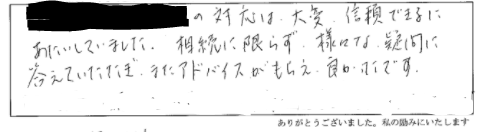 の対応は、大変、信頼できるに
あたいしていました。相続に限らず、様々な、疑問に
答えていただき、またアドバイスがもらえ、良かったです。
ありがとうございました。私の励みにいたします